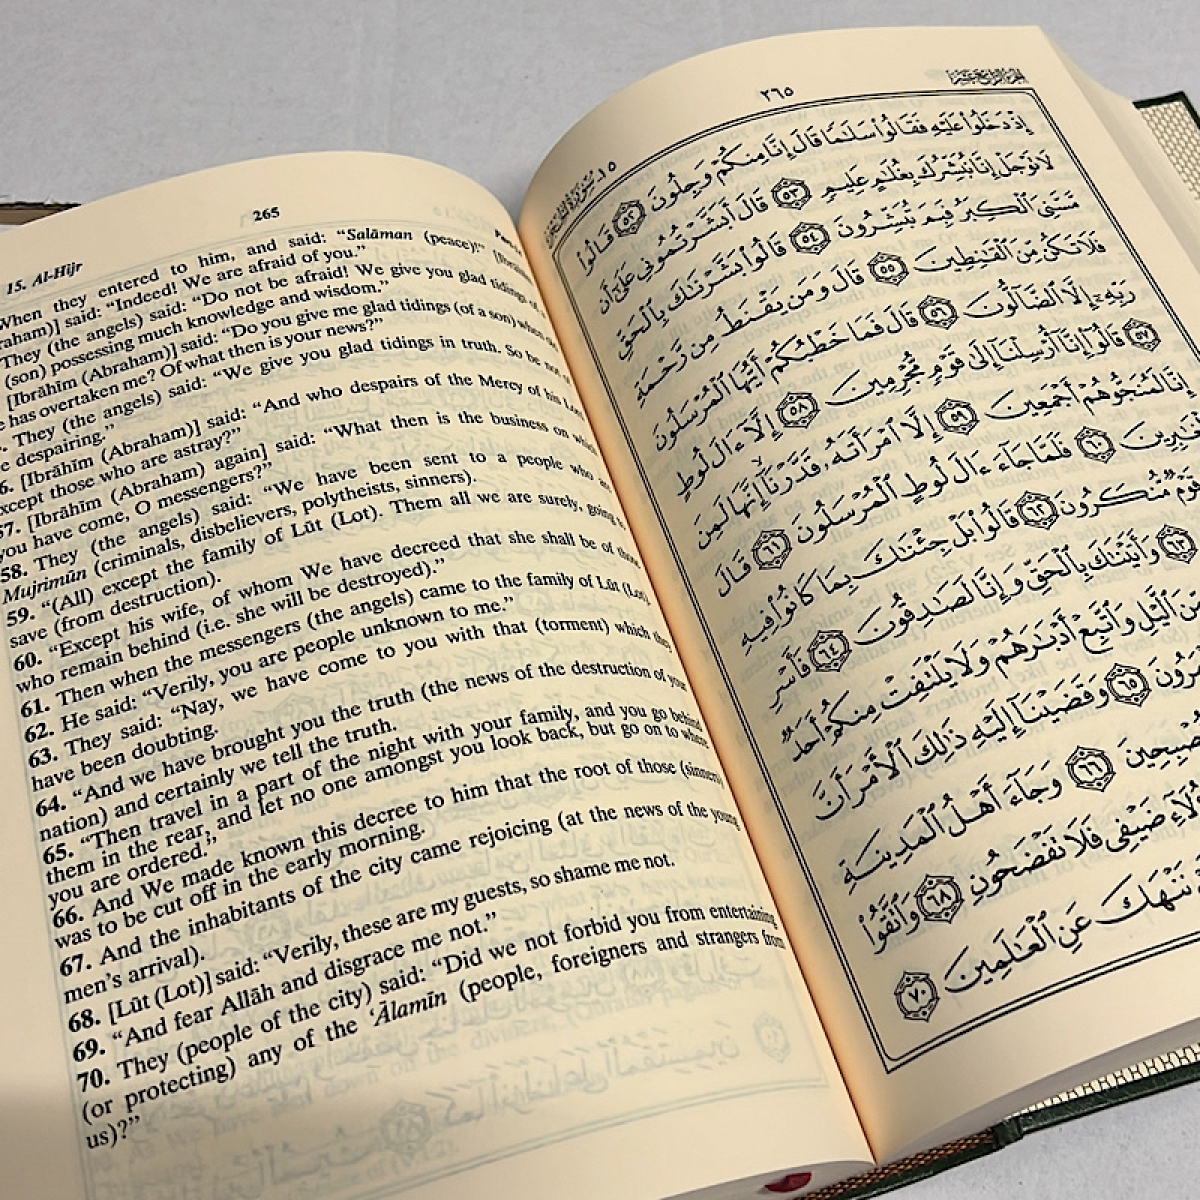 265
15. Al-Hijr
When they entered to him, and said: “Salāman (peace)!” [Ibrāhīm
(Abraham)] said: “Indeed! We are afraid of you.”
They (the angels) said: “Do not be afraid! We give you glad tidings of
(son) possessing much knowledge and wisdom.”
[Ibrāhīm (Abraham)] said: “Do you give me glad tidings (of a son) when
has overtaken me? Of what then is your news?”
They (the angels) said: “We give you glad tidings in truth. So be not of
despairing.”
[Ibrāhīm (Abraham)] said: “And who despairs of the Mercy of his Lord
except those who are astray?”
57. [Ibrāhīm (Abraham) again] said: “What then is the business on which
you have come, O messengers?”
58. They (the angels) said: “We have been sent to a people who are
Mujrimūn (criminals, disbelievers, polytheists, sinners).
59. “(All) except the family of Lūt (Lot). Them all we are surely, going to
save (from destruction).
60. “Except his wife, of whom We have decreed that she shall be of those
who remain behind (i.e. she will be destroyed).”
61. Then when the messengers (the angels) came to the family of Lūt (Lot).
62. He said: “Verily, you are people unknown to me.”
63. They said: “Nay, we have come to you with that (torment) which they
have been doubting.
64. “And we have brought you the truth (the news of the destruction of your
nation) and certainly we tell the truth.
65. “Then travel in a part of the night with your family, and you go behind
them in the rear, and let no one amongst you look back, but go on to where
you are ordered.”
66. And We made known this decree to him that the root of those (sinners)
was to be cut off in the early morning.
67. And the inhabitants of the city came rejoicing (at the news of the young
men’s arrival).
68. [Lūt (Lot)] said: “Verily, these are my guests, so shame me not.
69. “And fear Allāh and disgrace me not.”
70. They (people of the city) said: “Did we not forbid you from entertaining
(or protecting) any of the ‘Ālamīn (people, foreigners and strangers from
us)?”
٢٦٥
إِذْ دَخَلُوا۟ عَلَيْهِ فَقَالُوا۟ سَلَـٰمًا قَالَ إِنَّا مِنكُمْ وَجِلُونَ ٥٢ قَالُوا۟
لَا تَوْجَلْ إِنَّا نُبَشِّرُكَ بِغُلَـٰمٍ عَلِيمٍ ٥٣ قَالَ أَبَشَّرْتُمُونِى عَلَىٰٓ أَن
مَّسَّنِىَ ٱلْكِبَرُ فَبِمَ تُبَشِّرُونَ ٥٤ قَالُوا۟ بَشَّرْنَـٰكَ بِٱلْحَقِّ
فَلَا تَكُن مِّنَ ٱلْقَـٰنِطِينَ ٥٥ قَالَ وَمَن يَقْنَطُ مِن رَّحْمَةِ
رَبِّهِۦٓ إِلَّا ٱلضَّآلُّونَ ٥٦ قَالَ فَمَا خَطْبُكُمْ أَيُّهَا ٱلْمُرْسَلُونَ
٥٧ قَالُوٓا۟ إِنَّآ أُرْسِلْنَآ إِلَىٰ قَوْمٍ مُّجْرِمِينَ ٥٨ إِلَّآ ءَالَ لُوطٍ
إِنَّا لَمُنَجُّوهُمْ أَجْمَعِينَ ٥٩ إِلَّا ٱمْرَأَتَهُۥ قَدَّرْنَآ إِنَّهَا لَمِنَ
٦٠ فَلَمَّا جَآءَ ءَالَ لُوطٍ ٱلْمُرْسَلُونَ ٦١ قَالَ
قَوْمٌ مُّنكَرُونَ ٦٢ قَالُوا۟ بَلْ جِئْنَـٰكَ بِمَا كَانُوا۟ فِيهِ
٦٣ وَأَتَيْنَـٰكَ بِٱلْحَقِّ وَإِنَّا لَصَـٰدِقُونَ ٦٤ فَأَسْرِ
ٱلَّيْلِ وَٱتَّبِعْ أَدْبَـٰرَهُمْ وَلَا يَلْتَفِتْ مِنكُمْ أَحَدٌ
٦٥ وَقَضَيْنَآ إِلَيْهِ ذَٰلِكَ ٱلْأَمْرَ أَنَّ
٦٦ وَجَآءَ أَهْلُ ٱلْمَدِينَةِ
ضَيْفِى فَلَا تَفْضَحُونِ ٦٨ وَٱتَّقُوا۟
نَنْهَكَ عَنِ ٱلْعَـٰلَمِينَ ٧٠